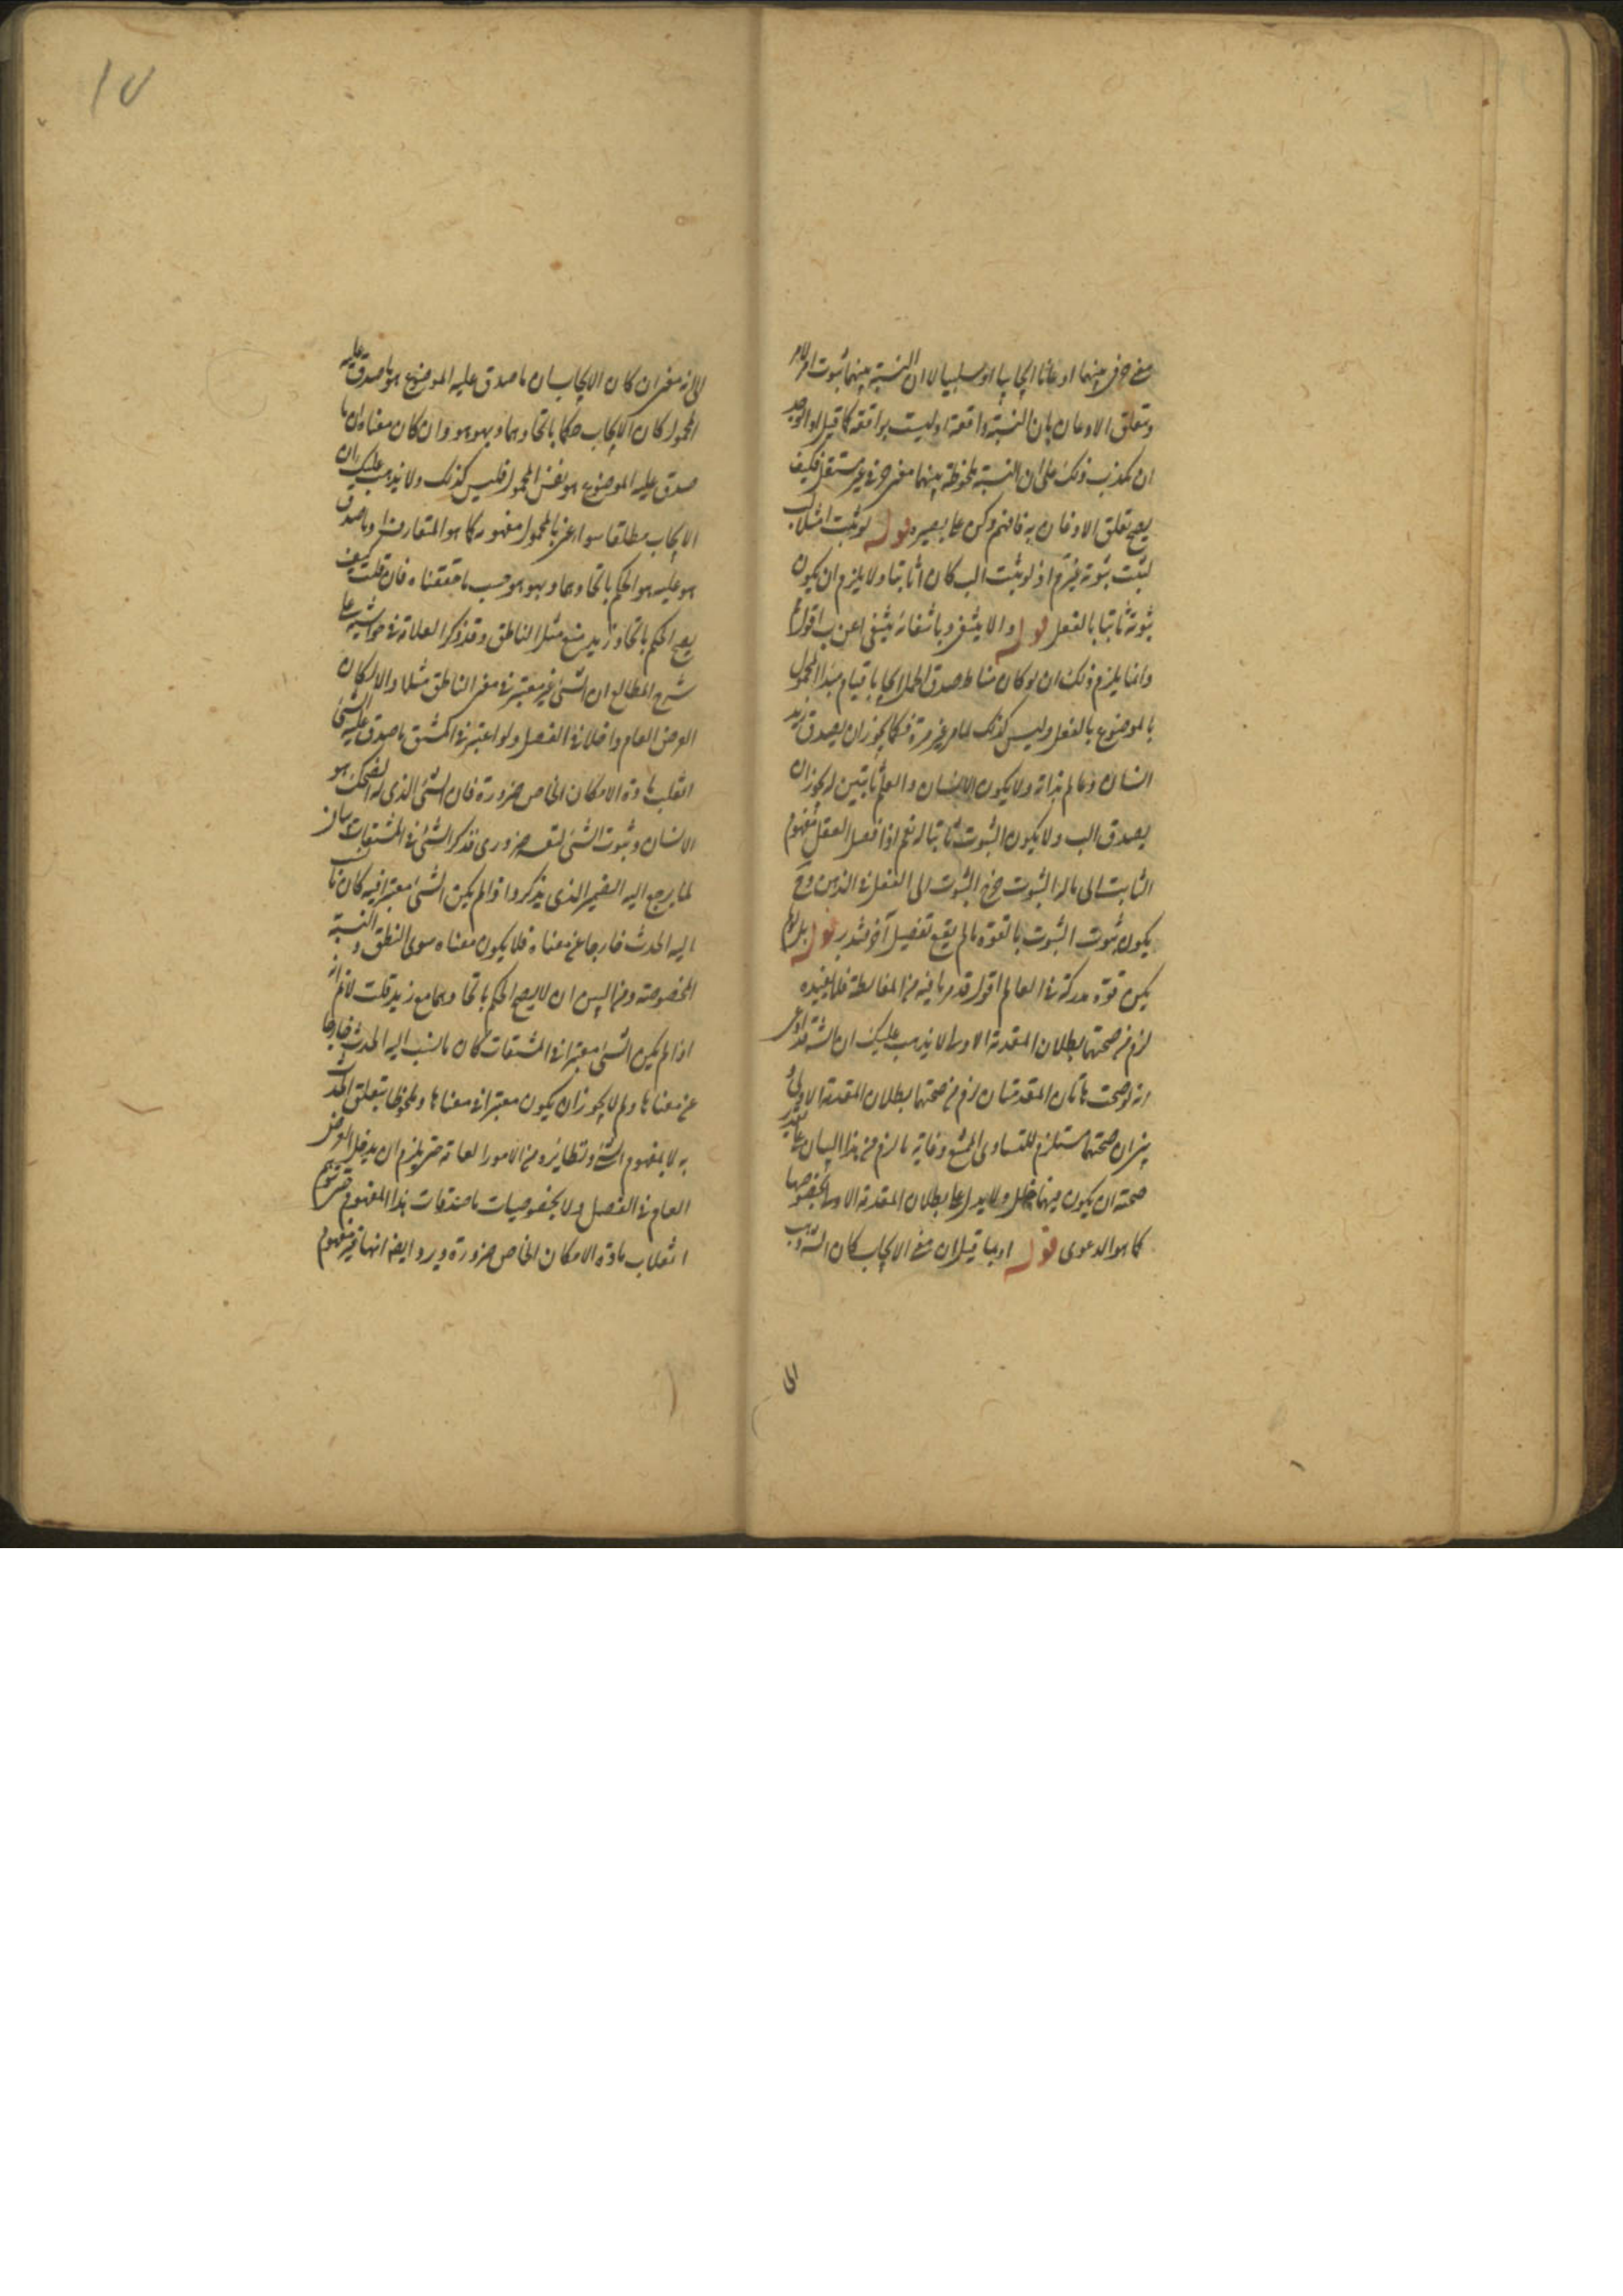 معنى حرفي بينهما اذعانا ايجابيا او سلبيا لا ان النسبة بينهما ثبوت امر لامر
ومتعلق الاذعان بان النسبة واقعة او ليست بواقعة كما قيل او الوجد
ان يكذب ذلك على ان النسبة ملحوظة بينهما معنى حرفي غير مستقل فكيف
يصح تعلق الاذعان به فافهم وكن على بصيرة قوله لو ثبت اشكال
لثبت ثبوته فيلزم اذ لو ثبت الب كان اثباتا ولا يلزم ان يكون
ثبوته ثابتا بالفعل قوله والا ينتفي وبانتفائه ينتفي اعن ب اقول
وانما يلزم ذلك ان لو كان مناط صدق الحمل الايجابي قيام مبدا المحمول
بالموضوع بالفعل وليس كذلك لما مر غير مرة فكما يجوز ان يصدق زيد
انسان وعالم بذاته ولا يكون الانسان والعلم ثابتين له يجوز ان
يصدق الب ولا يكون الثبوت ثابتا له نعم اذا فصل العقل مفهوم
الثابت الى ماله الثبوت خرج الثبوت الى الفعل في الذهن وح
يكون ثبوت الثبوت بالقوة ما لم يقع تفصيل آخر فتدبر قوله بل لم
يكن قوة مدركة في العالم اقول قد مر ما فيه من المغالطة فلا يفيده
لزم من صحتها بطلان المقدمة الاولى لا يذهب عليك ان الش قد ادعى
انه لو صحت هاتان المقدمتان لزم من صحتها بطلان المقدمة الاولى
بين ان صحتها مستلزم للتساوي الممتنع وغاية ما لزم من هذا البيان على تقدير
صحته ان يكون فيهما خلل ولا يدل على بطلان المقدمة الاولى بخصوصها
كما هو الدعوى قوله او بما قيل ان معنى الايجاب كان الش ذهب
الى
١٧
الى انه معنى ان كان الايجاب ان ما صدق عليه الموضوع هو ما صدق عليه
المحمول كان الايجاب حكما باتحادهما وبهوهو وان كان معناه ان ما
صدق عليه الموضوع هو نفس المحمول فليس كذلك ولا يذهب عليك ان
الايجاب مطلقا سواء عنى بالمحمول مفهومه كما هو المتعارف او ما صدق
هو عليه هو الحكم باتحادهما وبهوهو حسب ما حققناه فان قلت كيف
يصح الحكم باتحاد زيد مع مثل الناطق وقد ذكر العلامة في حواشيه على
شرح المطالع ان الشئ غير معتبر في معنى الناطق مثلا والا لكان
العرض العام داخلا في الفصل ولو اعتبر في المشتق ما صدق عليه الشئ
انقلب مادة الامكان الخاص ضرورة فان الشئ الذي له الضحك هو
الانسان وثبوت الشئ لنفسه ضروري فذكر الشئ في المشتقات بيان
لما يرجع اليه الضمير الذي يذكر واذا لم يكن الشئ معتبرا فيه كان ما نسب
اليه الحدث خارجا عن معناه فلا يكون معناه سوى النطق والنسبة
المخصوصة ومن البين ان لا يصح الحكم باتحادهما مع زيد قلت لا نم انه
اذا لم يكن الشئ معتبرا في المشتقات كان ما نسب اليه الحدث خارجا
عن معناها ولم لا يجوز ان يكون معتبرا في معناها وملحوظا بتعلق الحدث
به لا بمفهوم الشئ ونظائره من الامور العامة حتى يلزم ان يدخل العرض
العام في الفصل ولا بخصوصيات ما صدقات هذا المفهوم حتى يتوهم
انقلاب مادة الامكان الخاص ضرورة ويرد ايضا انهما غير مفهوم